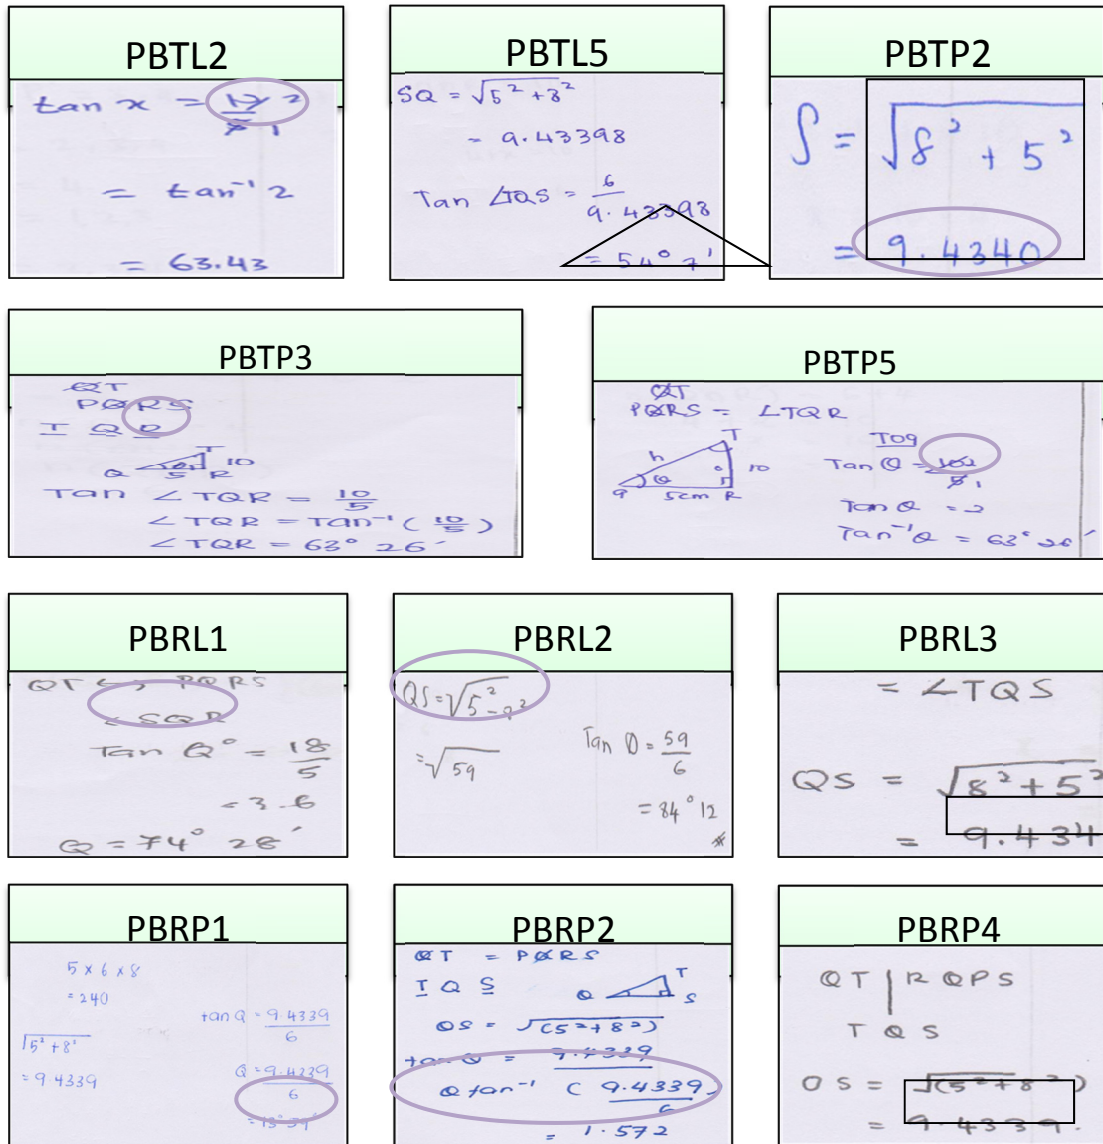 PBTL2
tan x = 12 2
5 1
= tan⁻¹ 2
= 63.43
PBTL5
SQ = √5² + 8²
= 9.43398
Tan ∠TQS = 6
9.43398
= 54° 7'
PBTP2
S = √8² + 5²
= 9.4340
PBTP3
QT
PQRS
T Q R
T
Q 5 R 10
Tan ∠TQR = 10/5
∠TQR = Tan⁻¹ (10/5)
∠TQR = 63° 26'
PBTP5
QT
PQRS = ∠TQR
T
h
o 10
Q θ 5cm R
TOA
Tan θ = 10 2
5 1
Tan θ = 2
Tan⁻¹ θ = 63° 26'
PBRL1
QT ↔ PQRS
∠ SQR
Tan Q° = 18/5
= 3.6
Q = 74° 28'
PBRL2
QS = √5² -
= √59
Tan θ = 59/6
= 84° 12
PBRL3
= ∠TQS
QS = √8² + 5²
= 9.434
PBRP1
5 x 6 x 8
= 240
√5² + 8²
= 9.4339
tan Q = 9.4339
6
Q = 9.4339
6
PBRP2
QT = PQRS
T Q S
T
Q S
QS = √(5² + 8²)
tan θ = 9.4339
θ tan⁻¹ (9.4339
6
= 1.572
PBRP4
QT | RQPS
T Q S
QS = √(5² + 8²)
= 9.4339.